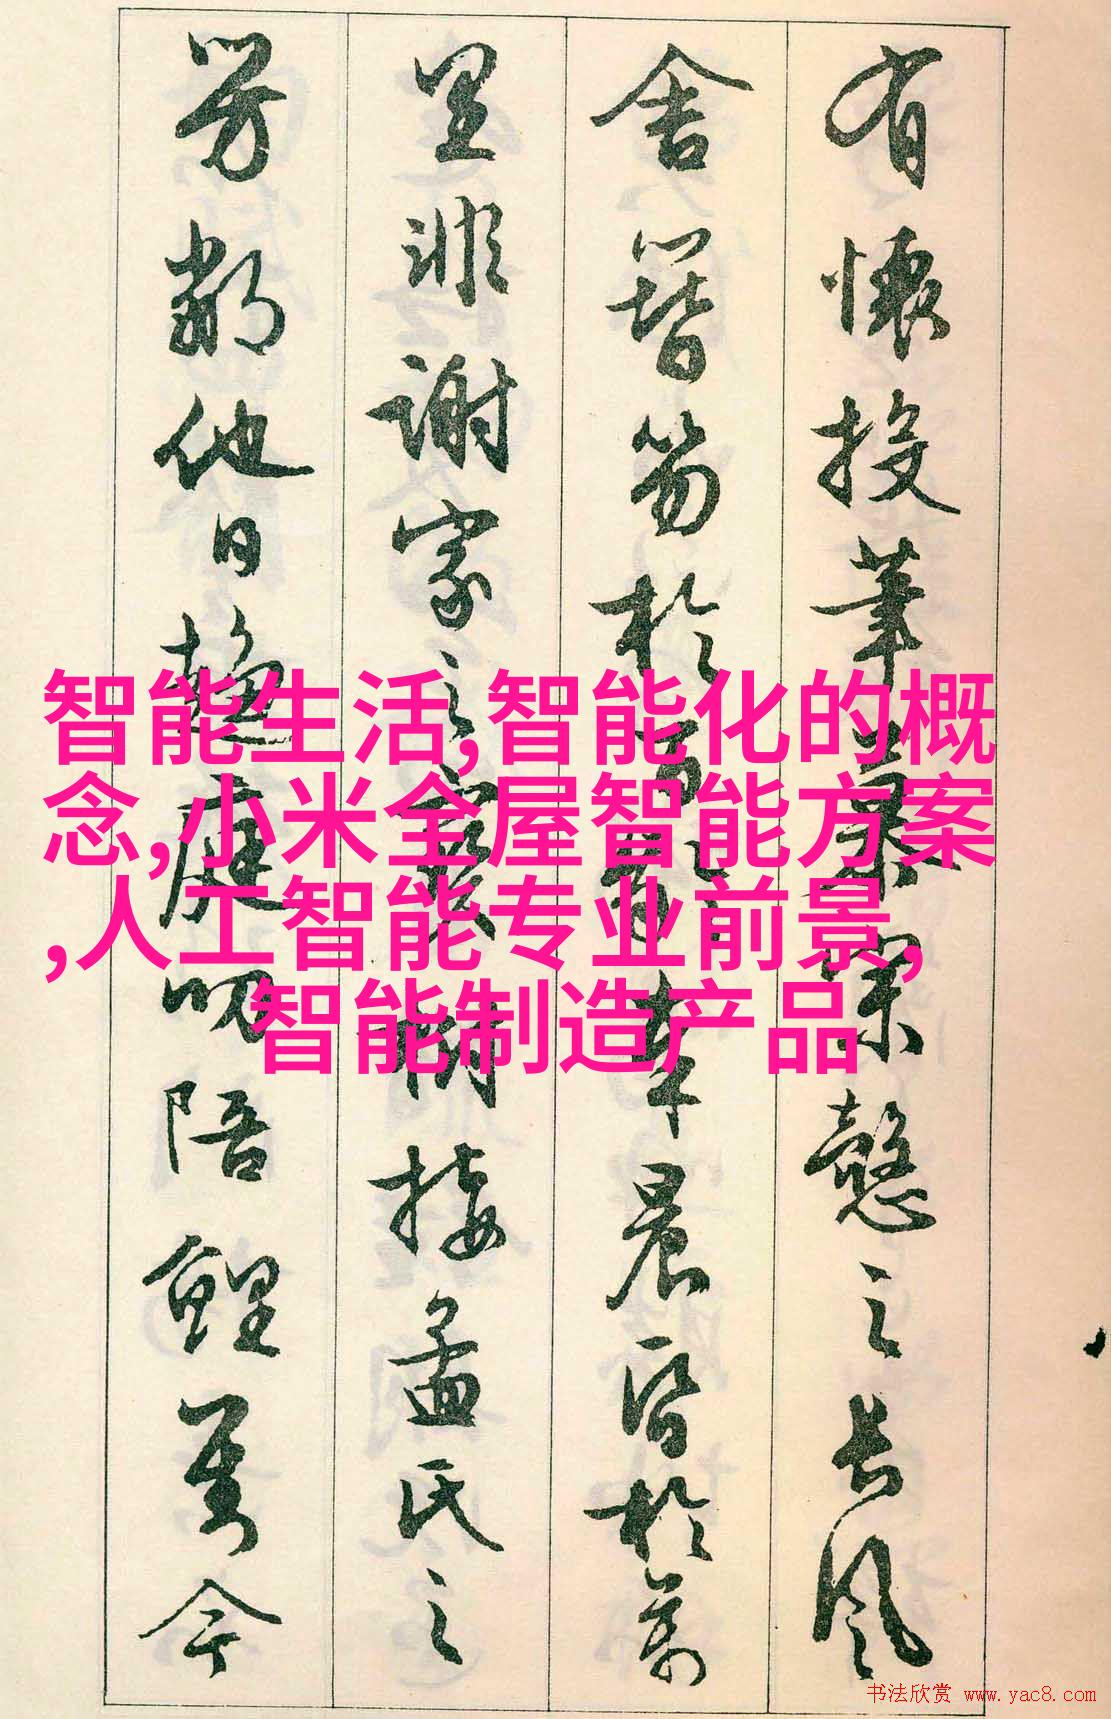 有懷投筆慕宗慤之長風
舍簪笏於百齡奉晨昏於萬
里非謝家之寶樹接孟氏之
芳鄰他日趨庭叨陪鯉對今
智能生活,智能化的概
念,小米全屋智能方案
,人工智能专业前景,
智能制造产品
书法欣赏 www.yac8.com